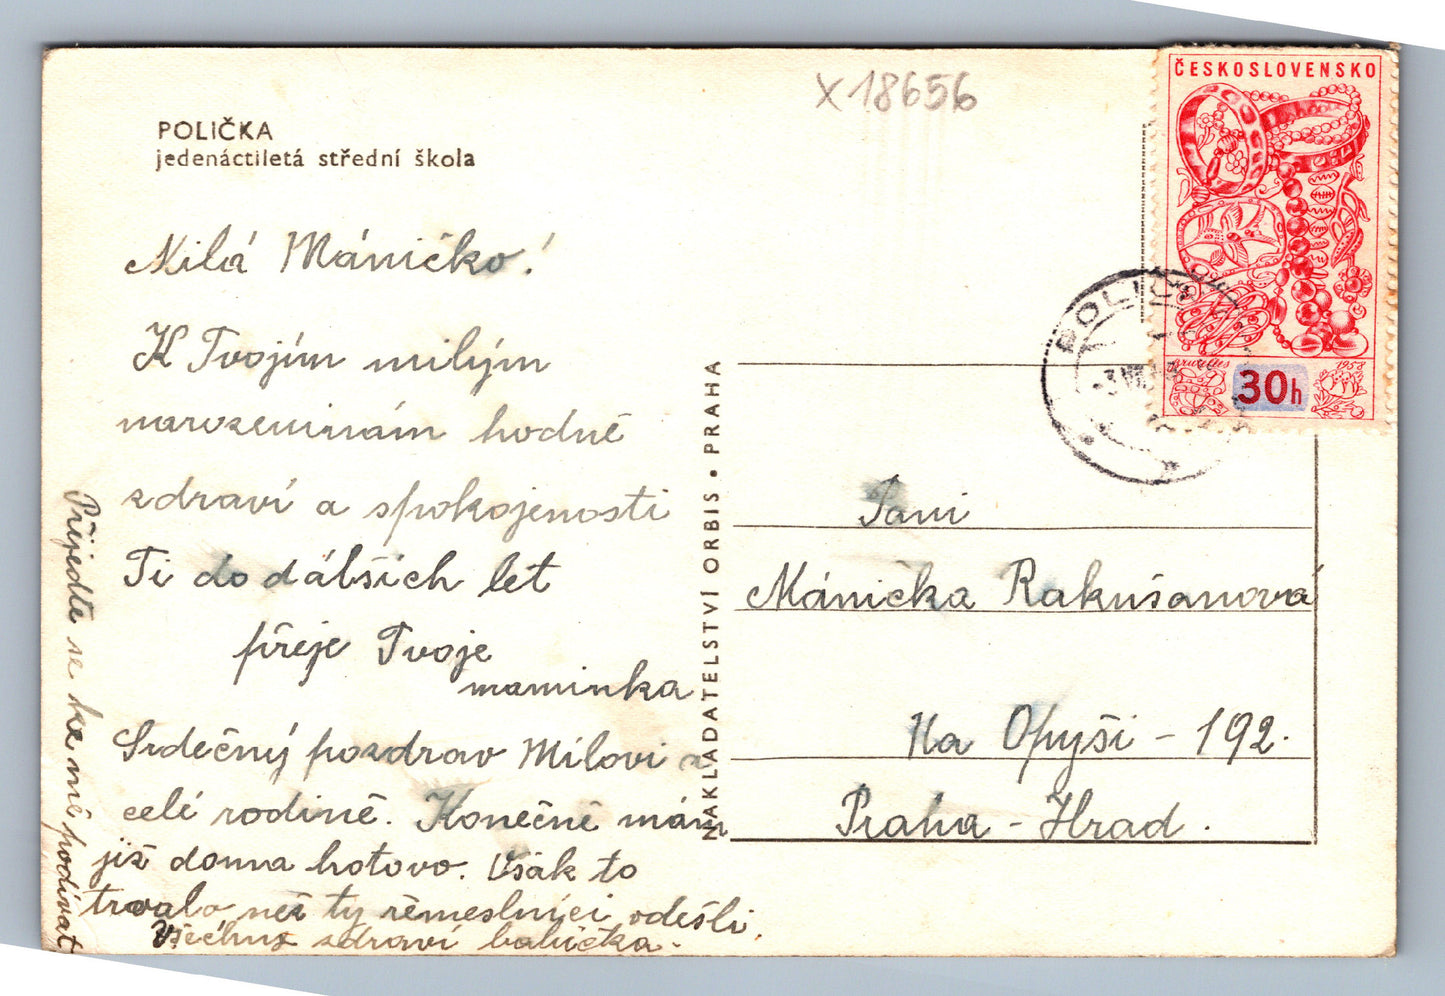 X 18656
POLIČKA
jedenáctiletá střední škola
Milá Máničko!
K Tvojím milým
narozeninám hodně
zdraví a spokojenosti
Ti do dálších let
přeje Tvoje
maminka
Srdečný pozdrav Milovi a
celé rodině. Konečně mám
již doma hotovo. Však to
trvalo než ty řemeslníci odešli.
Všechny zdraví babička.
Přijeďte se ke mě podívat
NAKLADATELSTVÍ ORBIS • PRAHA
ČESKOSLOVENSKO
bruxelles 1958
30h
POLIČ
Paní
Mánička Rakušanová
Na Opyši - 192.
Praha - Hrad.